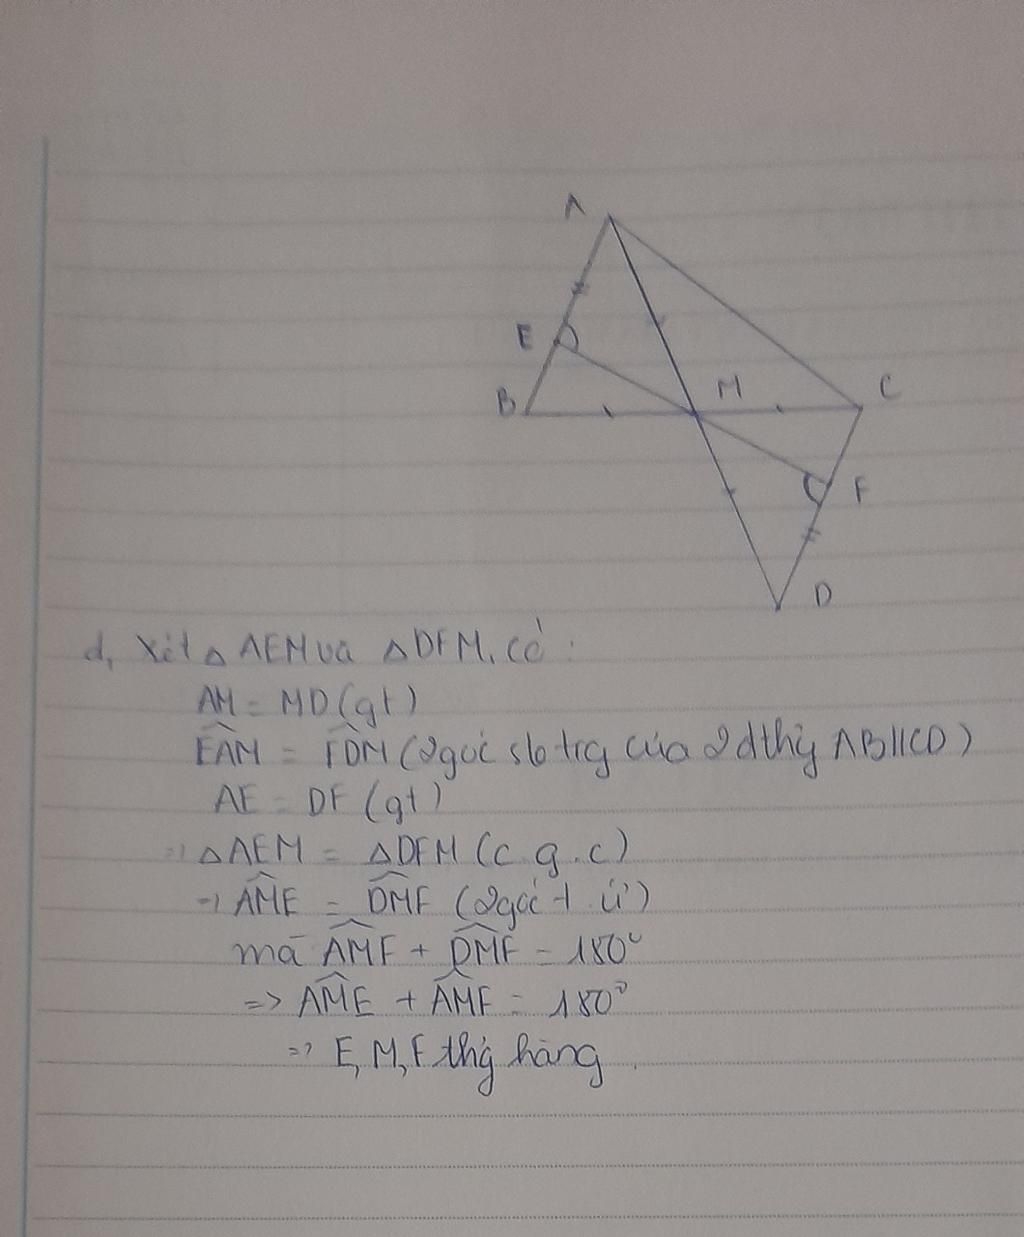 A
E
B
M
C
F
D
d, Xét △ AEM và △DFM, có :
AM = MD (gt)
EAM = FDM (2 góc slo trg của 2 đthg AB//CD)
AE = DF (gt)
=> △AEM = △DFM (c.g.c)
=> AME = DMF (2 góc t.ứ)
mà AMF + DMF = 180°
=> AME + AMF = 180°
=> E, M, F thg hàng.